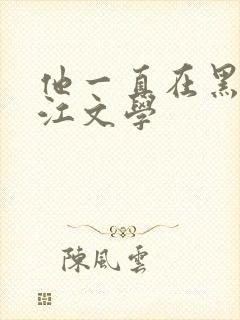 他一直在黑
江文學
陳風雲